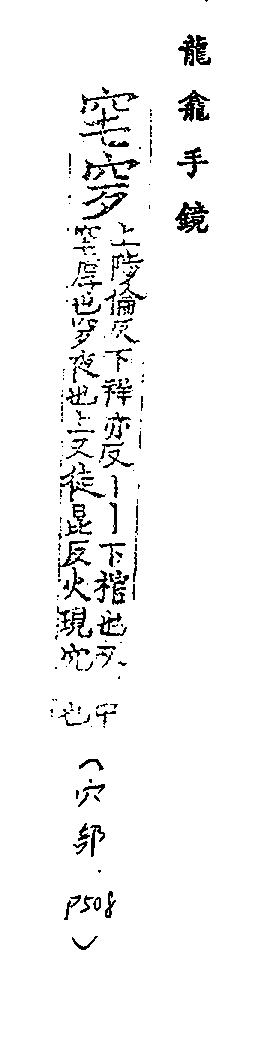 龍龕手鏡
窀穸
上陟倫反下祥亦反丨丨下棺也又
窀厚也穸夜也上又徒昆反火現穴
中
也
(穴部.P508)